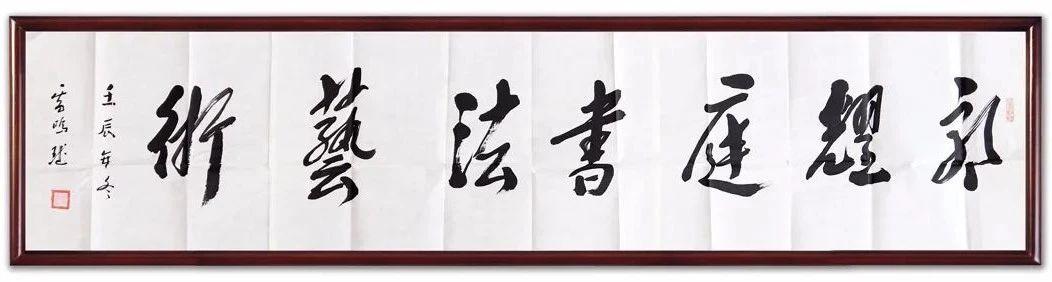 郭耀庭書法藝術
壬辰年冬
雷鳴球